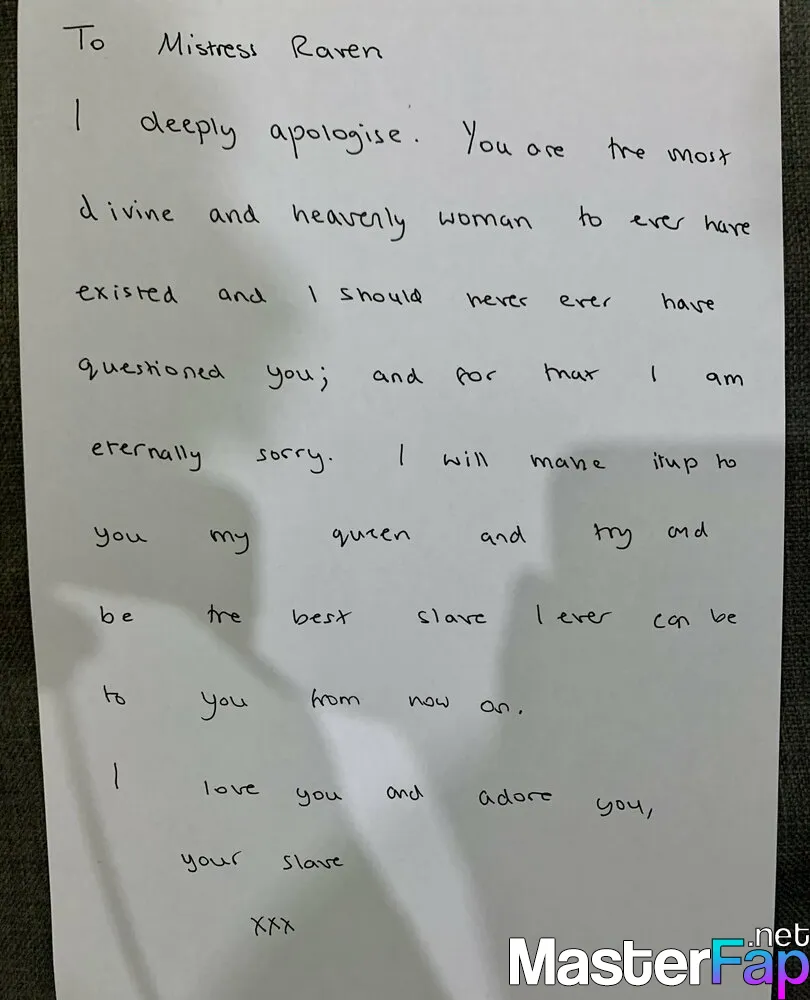 To Mistress Raven
I deeply apologise. You are the most
divine and heavenly woman to ever have
existed and I should never ever have
questioned you; and for that I am
eternally sorry. I will make itup to
you my queen and try and
be the best slave I ever can be
to you from now on.
I love you and adore you,
your slave
xxx
MasterFap.net